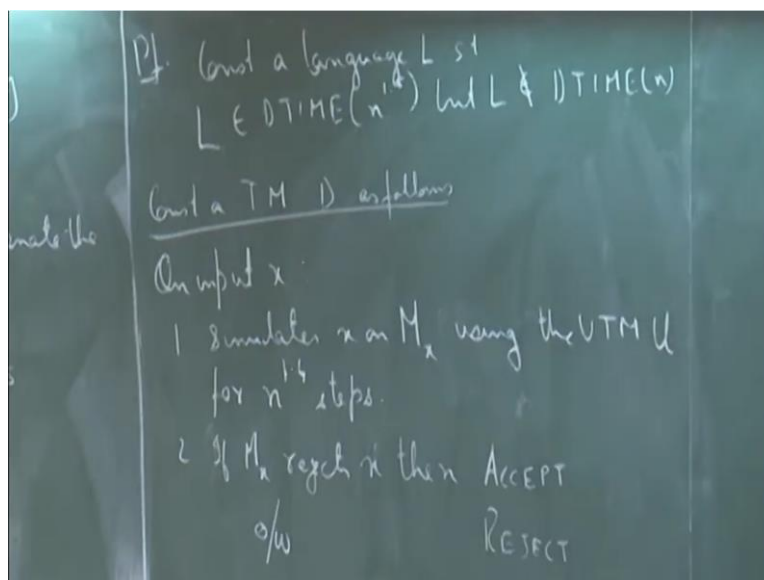 )
Pf. Const a language L st
L ∈ DTIME(n^1.5) but L ∉ DTIME(n)
Const a TM D as follows
nate the
On input x
1 Simulates x on M_x using the UTM U
for n^1.4 steps.
s
2 If M_x rejects x then ACCEPT
o/w REJECT